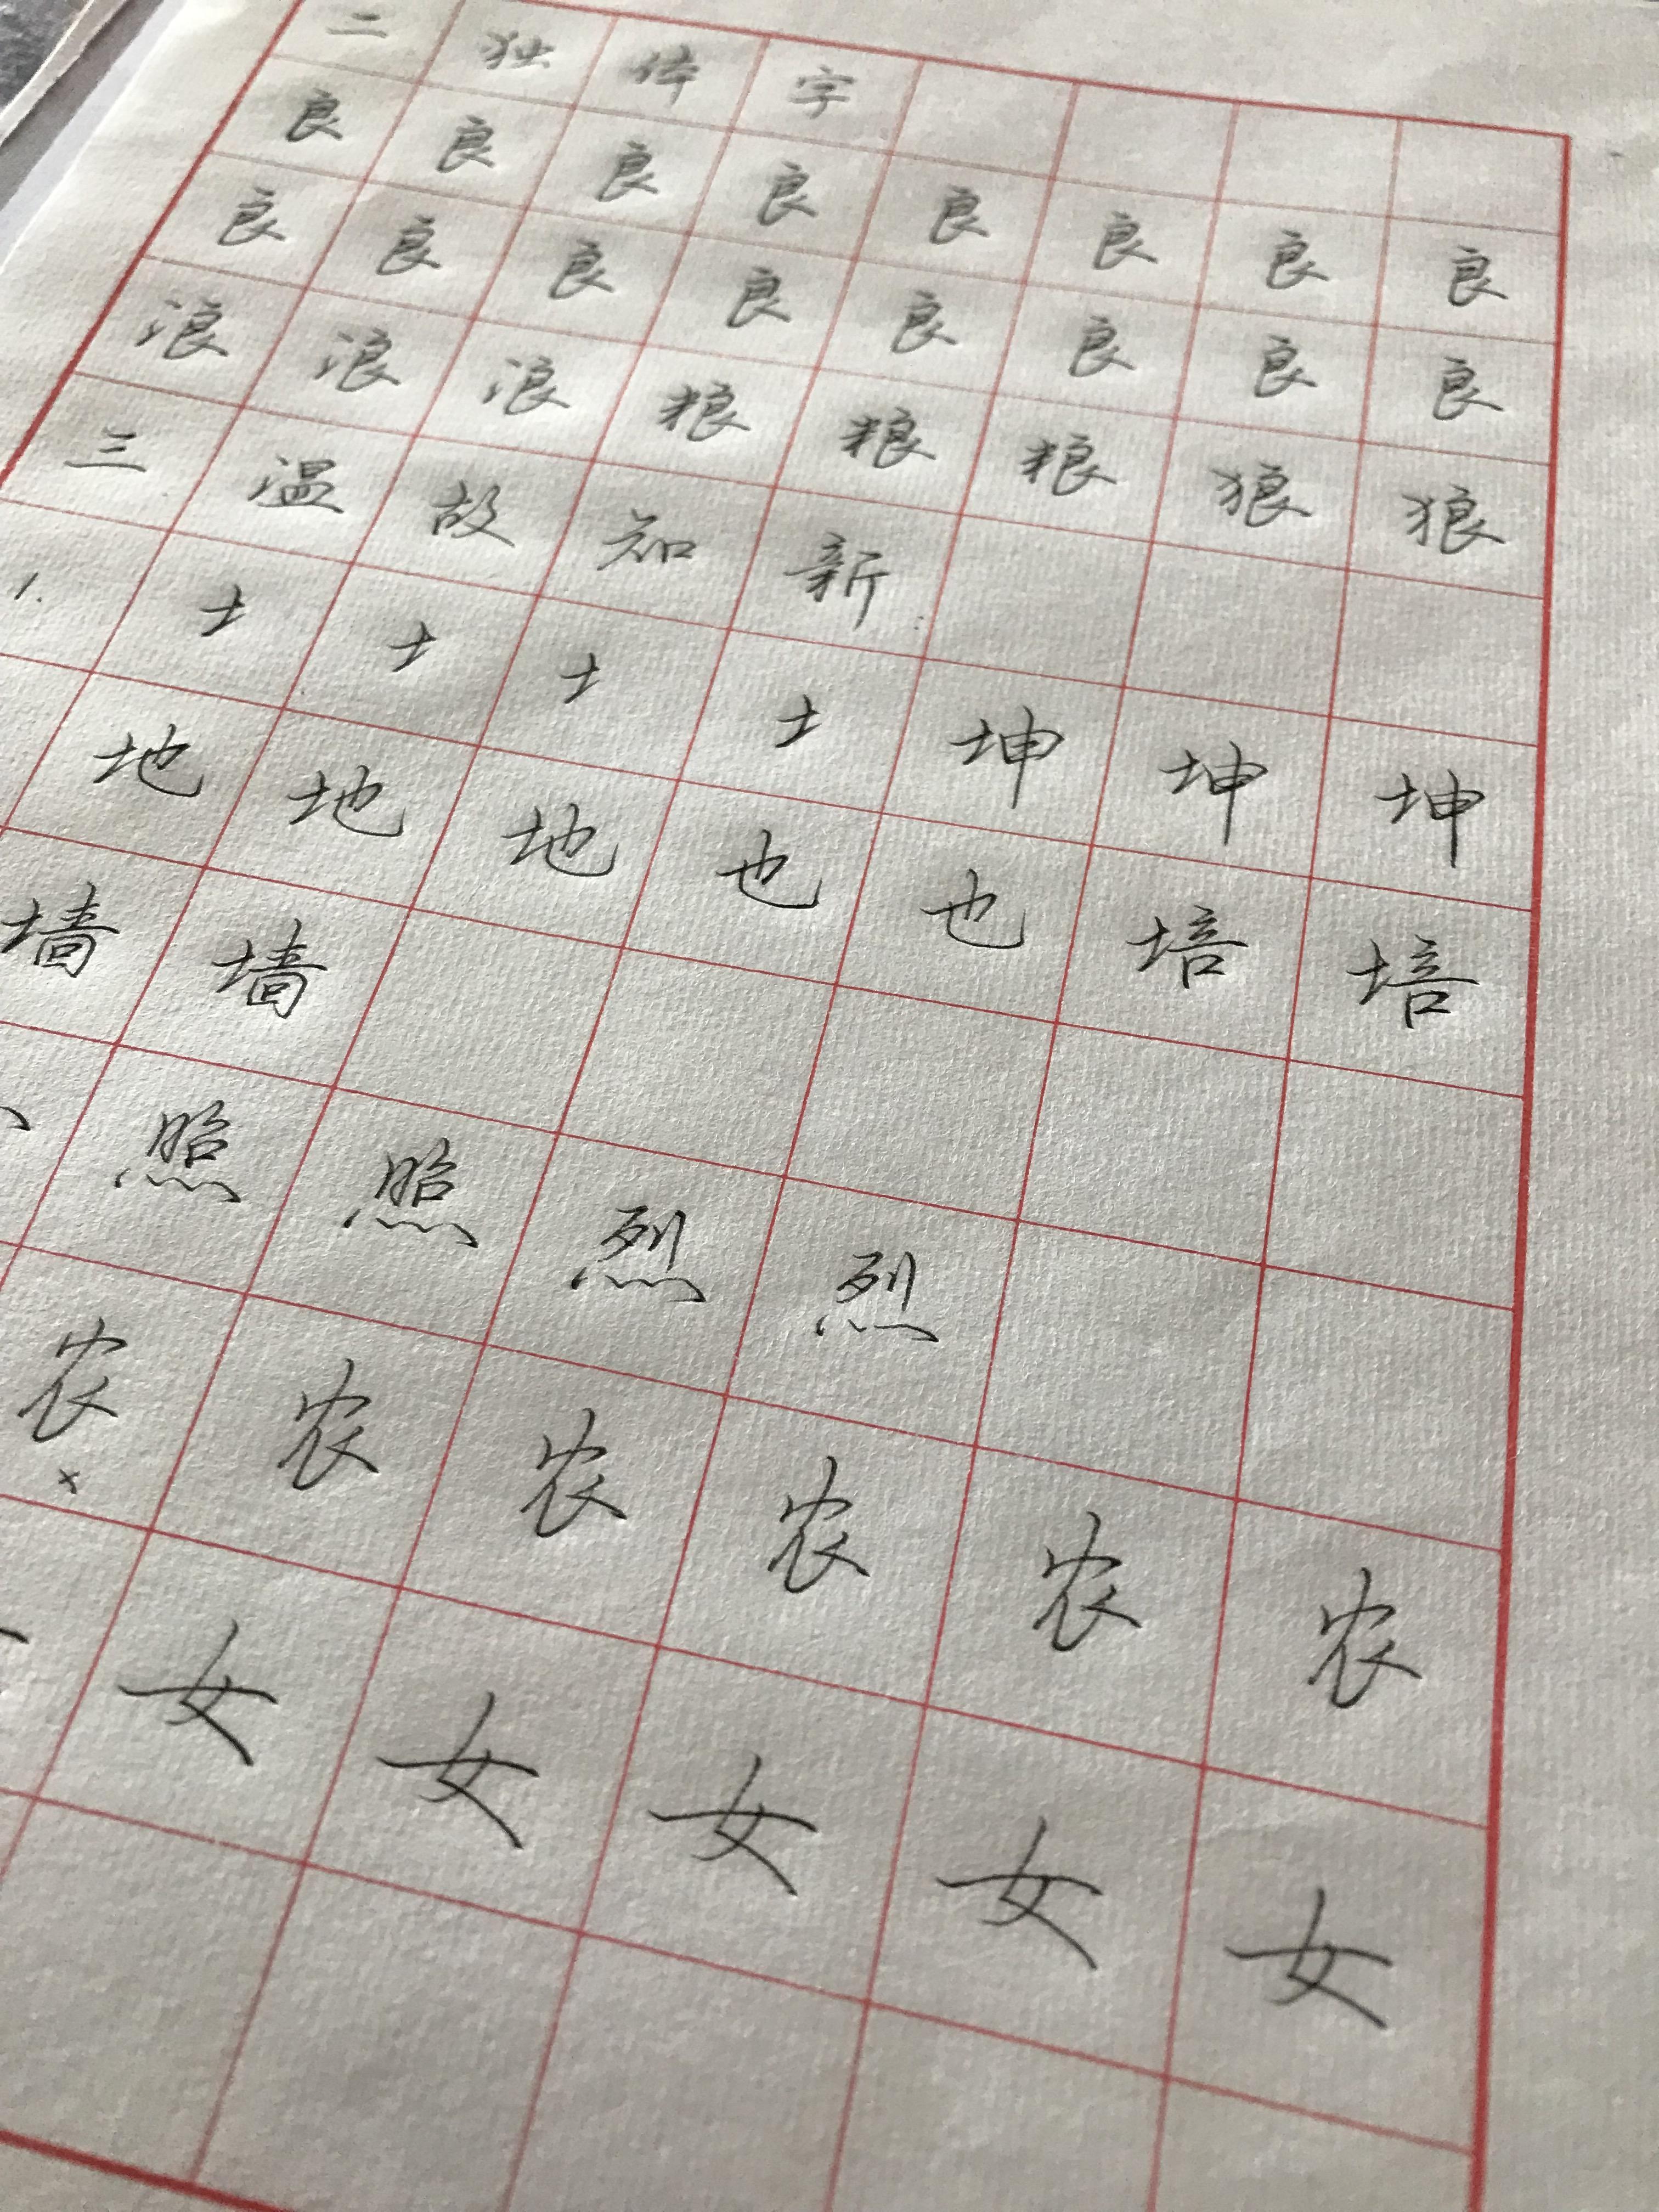 二独体字
良良良良良良良良
良良良良良良良良
浪浪浪粮粮粮狼狼
三温故知新
1.土土土土坤坤坤
地地地也也培培
墙墙
照照烈烈
农农农农农农
×
女女女女女